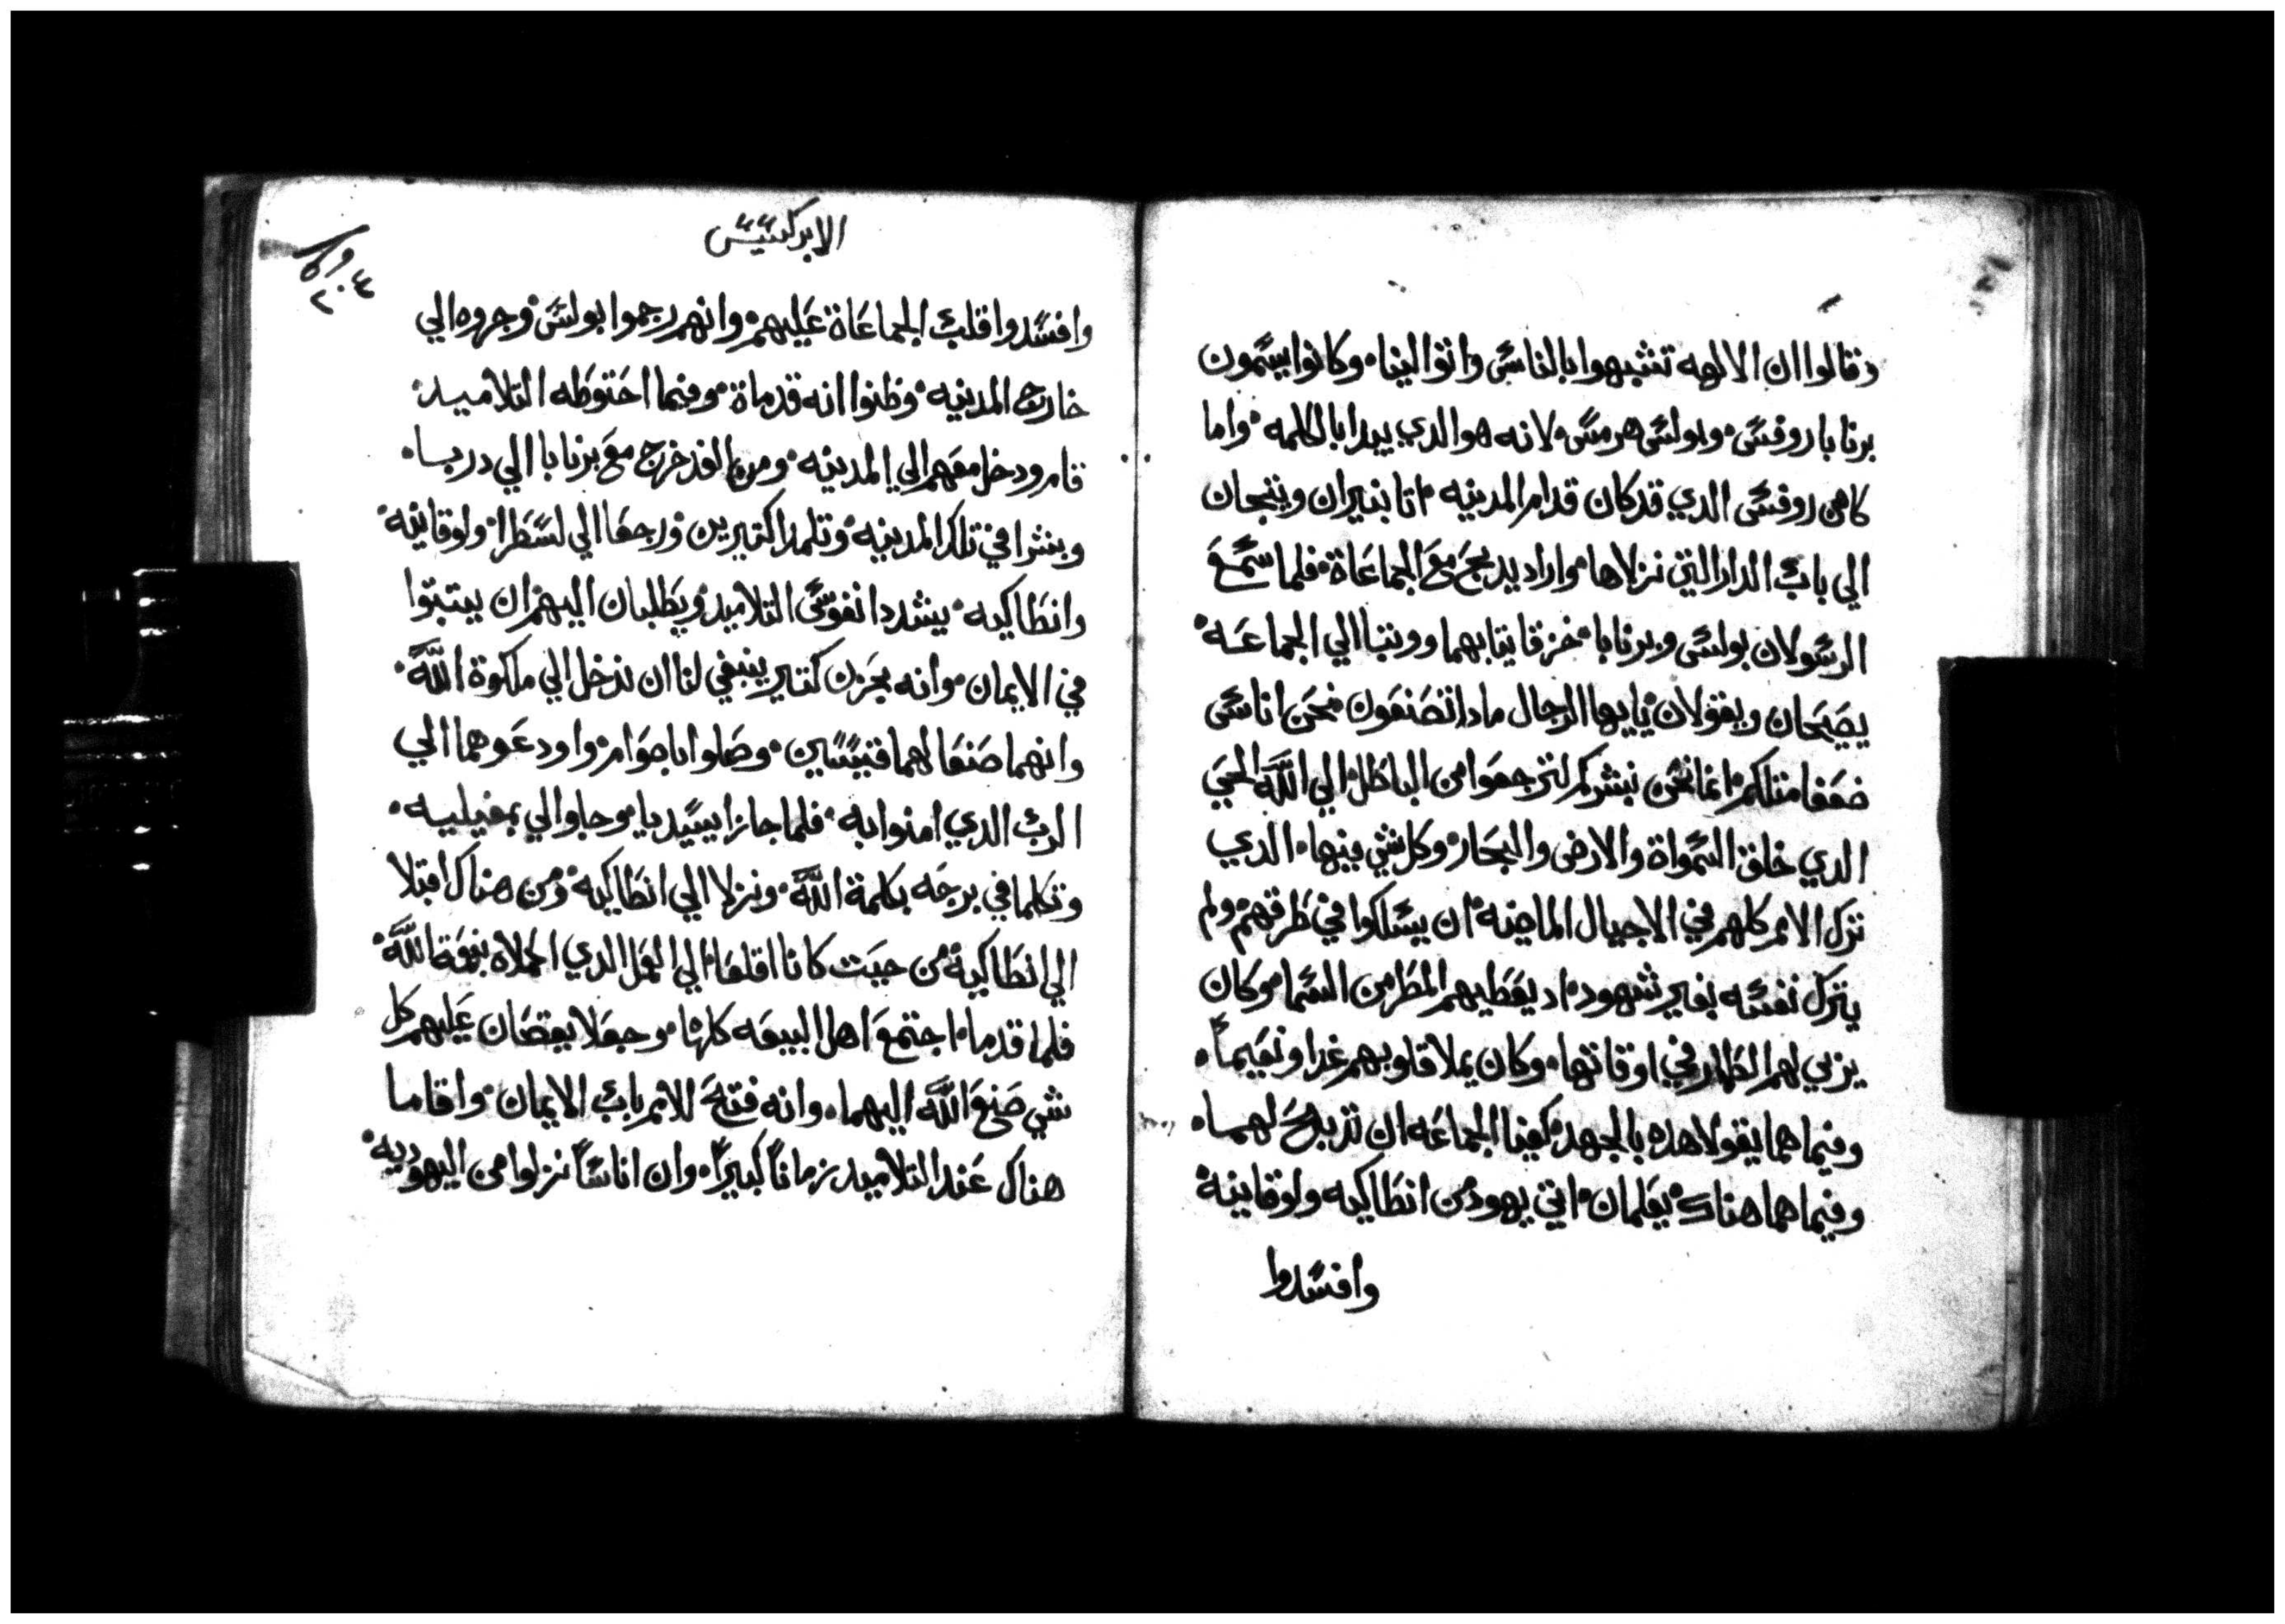 وقالوا ان الالهه تشبهوا بالناس واتوا الينا. وكانوا يسمون
برنابا روفس. وبولس هرمس. لانه هو الدي يبدا بالكلمه. واما
كاهن روفس الدي قد كان قدام المدينه. اتا بتيران وتيجان
الي باب الدار التي نزلاها. واراد يدبح مع الجماعاة. فلما سمع
الرسولان بولس وبرنابا. خزقا يتابهما ووتبا الي الجماعه.
يصيحان ويقولان. يايها الرجال مادا تصنعون. نحن اناس
ضعفا متلكم. انما نحن نبشركم لترجعوا من الباطل. الي الله الحي
الدي خلق السمواة والارض والبحار. وكل شي فيها. الدي
ترك الامم كلهم في الاجيال الماضيه. ان يسلكوا في طرقهم. ولم
يترك نفسه بغير شهود. اد يعطيهم المطر من السما. وكان
يربي لهم التمار في اوقاتها. وكان يملا قلوبهم غدا ونعيماً.
وفيما هما يقولا هده بالجهد. كفيا الجماعه ان تدبح لهما.
وفيما هما هناك يعلمان. اتي يهود من انطاكيه ولوقانيه.
وافسدوا
الابركسيس
وافسدوا قلب الجماعاة عليهم. وانهم رجموا بولس. وجروه الي
خارج المدينه. وظنوا انه قد ماة. وفيما احتوطه التلاميد.
قام ودخل معهم الي المدينه. ومن الغد خرج مع برنابا الي دربا.
وبشرا في تلك المدينه. وتلمدا كتيرين. ورجعا الي لسطرا. ولوقانيه.
وانطاكيه. يشددا نفوس التلاميد. ويطلبان اليهم ان يتبتوا
في الايمان. وانه بحزن كتير ينبغي لنا ان ندخل الي ملكوة الله.
وانهما صنعا لهما قسيسين. وصلوا باصوام. واودعوهما الي
الرب الدي امنوا به. فلما جازا بيسيديا. وجاوا الي بمفيليه.
وتكلما في برجه بكلمة الله. ونزلا الي انطاكيه. ومن هناك اقبلا
الي انطاكية. من حيت كانا اقلعا. الي العمل الدي اكملاه بنعمة الله.
فلما قدما. اجتمع اهل البيعه كلها. وجعلا يقصان عليهم كل
شي صنع الله اليهما. وانه فتح للامم باب الايمان. واقاما
هناك عند التلاميد زماناً كبيراً. وان اناساً نزلوا من اليهوديه.